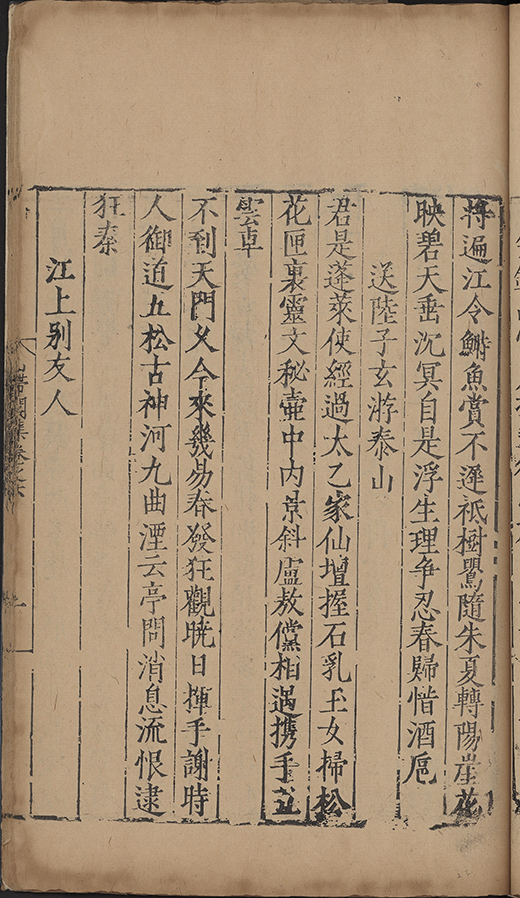 將遍江令鰣魚賞不遲祇樹鶯隨朱夏轉陽崖花
映碧天垂沉冥自是浮生理爭忍春歸惜酒巵
送陸子玄游泰山
君是蓬萊使經過太乙家仙壇握石乳玉女掃松
花匣裏靈文秘壺中内景斜盧敖儻相遇携手五
雲車
不到天門久今來幾易春發狂觀曉日揮手謝時
人御道五松古神河九曲湮云亭問消息流恨逮
狂秦
江上别友人